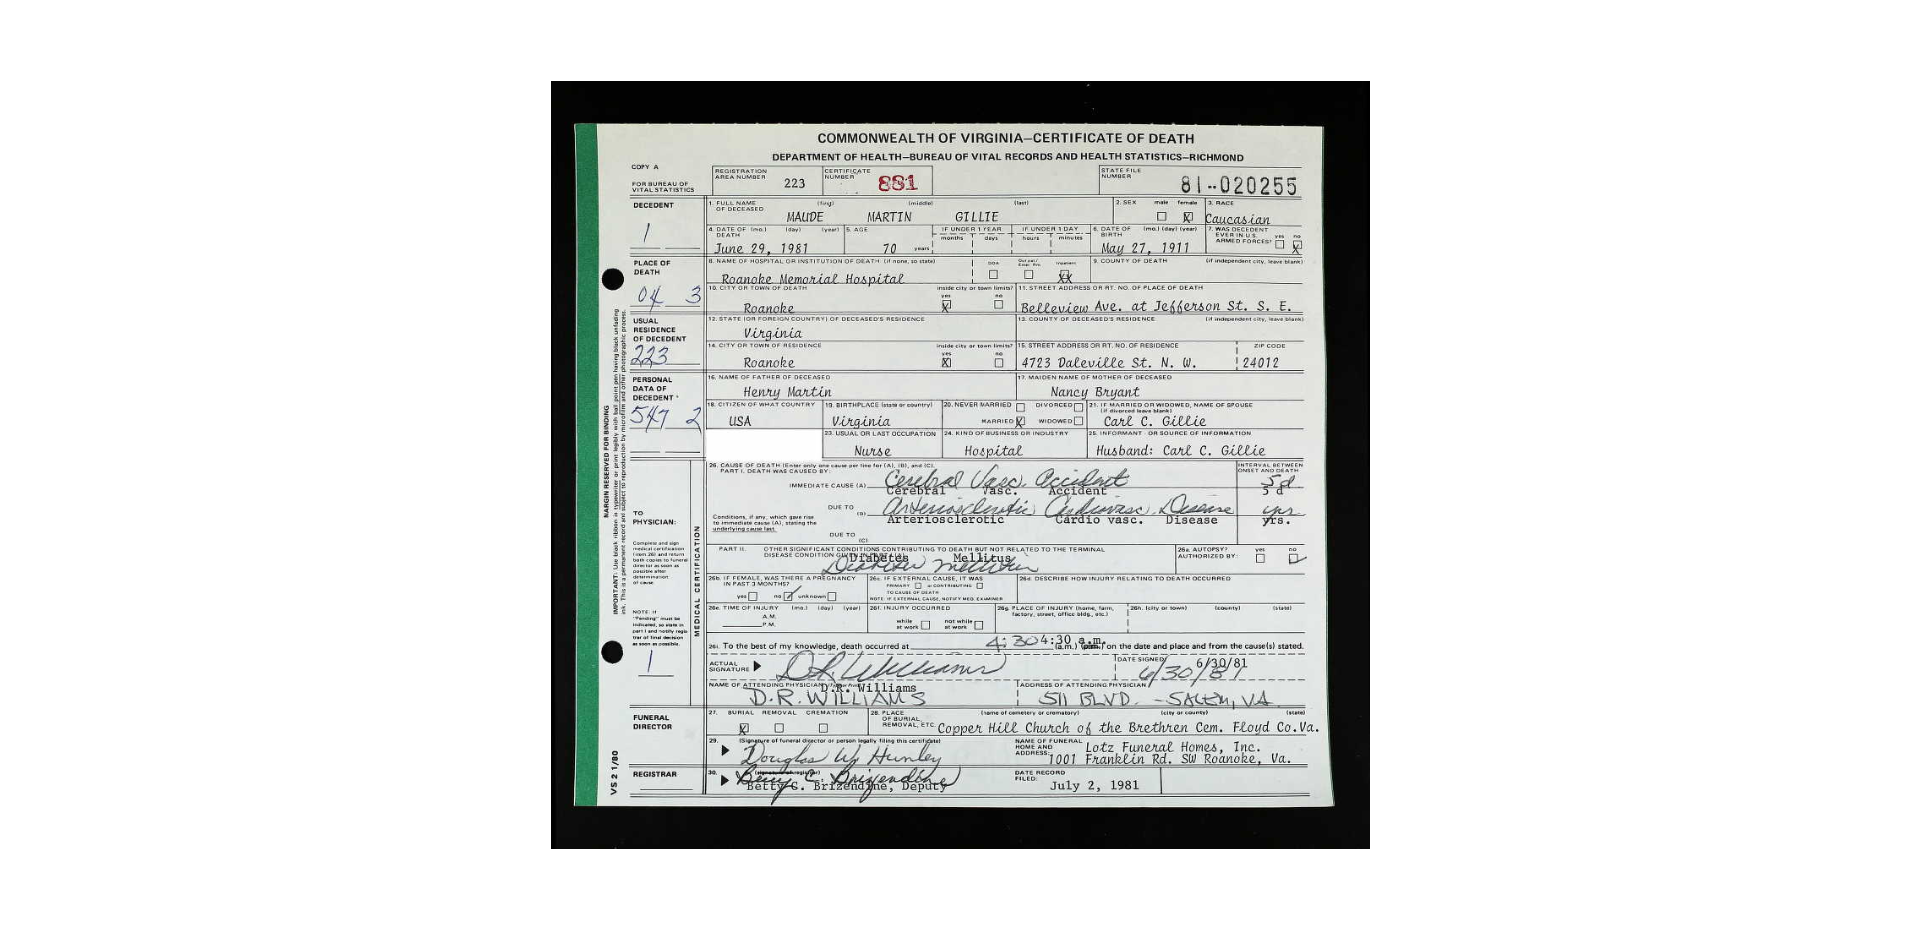 COMMONWEALTH OF VIRGINIA—CERTIFICATE OF DEATH
DEPARTMENT OF HEALTH—BUREAU OF VITAL RECORDS AND HEALTH STATISTICS—RICHMOND
COPY A
FOR BUREAU OF VITAL STATISTICS
REGISTRATION AREA NUMBER 223
CERTIFICATE NUMBER 881
STATE FILE NUMBER 81-020255
DECEDENT
1
1. FULL NAME OF DECEASED (first) (middle) (last)
MAUDE MARTIN GILLIE
2. SEX male female X
3. RACE
Caucasian
4. DATE OF DEATH (mo.) (day) (year)
June 29, 1981
5. AGE
70 years
IF UNDER 1 YEAR months days
IF UNDER 1 DAY hours minutes
6. DATE OF BIRTH (mo.) (day) (year)
May 27, 1911
7. WAS DECEDENT EVER IN U.S. ARMED FORCES? yes no X
PLACE OF DEATH
04 3
8. NAME OF HOSPITAL OR INSTITUTION OF DEATH (if none, so state)
Roanoke Memorial Hospital
DOA Inpatient XX
9. COUNTY OF DEATH (if independent city, leave blank)
10. CITY OR TOWN OF DEATH inside city or town limits? yes X no
Roanoke
11. STREET ADDRESS OR RT. NO. OF PLACE OF DEATH
Belleview Ave. at Jefferson St. S. E.
USUAL RESIDENCE OF DECEDENT
223
12. STATE (OR FOREIGN COUNTRY) OF DECEASED'S RESIDENCE
Virginia
13. COUNTY OF DECEASED'S RESIDENCE (if independent city, leave blank)
14. CITY OR TOWN OF RESIDENCE inside city or town limits? yes X no
Roanoke
15. STREET ADDRESS OR RT. NO. OF RESIDENCE ZIP CODE
4723 Daleville St. N. W. 24012
PERSONAL DATA OF DECEDENT
547 2
16. NAME OF FATHER OF DECEASED
Henry Martin
17. MAIDEN NAME OF MOTHER OF DECEASED
Nancy Bryant
18. CITIZEN OF WHAT COUNTRY
USA
19. BIRTHPLACE (state or country)
Virginia
20. NEVER MARRIED DIVORCED
MARRIED X WIDOWED
21. IF MARRIED OR WIDOWED, NAME OF SPOUSE
(if divorced leave blank)
Carl C. Gillie
23. USUAL OR LAST OCCUPATION
Nurse
24. KIND OF BUSINESS OR INDUSTRY
Hospital
25. INFORMANT - OR SOURCE OF INFORMATION
Husband: Carl C. Gillie
MARGIN RESERVED FOR BINDING
IMPORTANT: Use black ribbon in typewriter or print legibly with ball point pen having black unfading
ink. This is a permanent record and subject to reproduction by microfilm and other photographic process.
MEDICAL CERTIFICATION
TO PHYSICIAN:
Complete and sign
medical certification
(item 26) and return
both copies to funeral
director as soon as
possible after
determination
of cause.
NOTE: If
"Pending" must be
indicated, so state in
part I and notify regis
trar of final decision
as soon as possible.
1
26. CAUSE OF DEATH (Enter only one cause per line for (A), (B), and (C).
PART I. DEATH WAS CAUSED BY:
INTERVAL BETWEEN ONSET AND DEATH
IMMEDIATE CAUSE (A) Cerebral Vasc. Accident 5d
Cerebral Vasc. Accident 5 d
DUE TO (B) Arteriosclerotic Cardiovasc. Disease yrs
Arteriosclerotic Cardio vasc. Disease yrs.
Conditions, if any, which gave rise
to immediate cause (A), stating the
underlying cause last.
DUE TO (C)
PART II. OTHER SIGNIFICANT CONDITIONS CONTRIBUTING TO DEATH BUT NOT RELATED TO THE TERMINAL
DISEASE CONDITION GIVEN IN PART I (A)
Diabetes Mellitus
Diabetes Mellitus
26a. AUTOPSY? AUTHORIZED BY: yes no
26b. IF FEMALE, WAS THERE A PREGNANCY IN PAST 3 MONTHS?
yes no unknown
26c. IF EXTERNAL CAUSE, IT WAS
PRIMARY or CONTRIBUTING
TO CAUSE OF DEATH
NOTE: IF EXTERNAL CAUSE, NOTIFY MED. EXAMINER
26d. DESCRIBE HOW INJURY RELATING TO DEATH OCCURRED
26e. TIME OF INJURY (mo.) (day) (year)
A.M.
P.M.
26f. INJURY OCCURRED
while at work not while at work
26g. PLACE OF INJURY (home, farm, factory, street, office bldg., etc.)
26h. (city or town) (county) (state)
26i. To the best of my knowledge, death occurred at 4:30 4:30 a.m. (a.m.) (p.m.) on the date and place and from the cause(s) stated.
ACTUAL SIGNATURE D.R. Williams
DATE SIGNED 6/30/81
6/30/81
NAME OF ATTENDING PHYSICIAN
D.R. Williams
D.R. WILLIAMS
ADDRESS OF ATTENDING PHYSICIAN
511 BLVD. - SALEM, VA
FUNERAL DIRECTOR
27. BURIAL REMOVAL CREMATION
X
28. PLACE OF BURIAL, REMOVAL, ETC. (name of cemetery or crematory) (city or county) (state)
Copper Hill Church of the Brethren Cem. Floyd Co.Va.
29. (Signature of funeral director or person legally filing this certificate)
Douglas W Hunley
NAME OF FUNERAL HOME AND ADDRESS:
Lotz Funeral Homes, Inc.
1001 Franklin Rd. SW Roanoke, Va.
REGISTRAR
30. (signature of registrar)
Betty C. Brizendine
Betty C. Brizendine, Deputy
DATE RECORD FILED:
July 2, 1981
VS 2 1/80